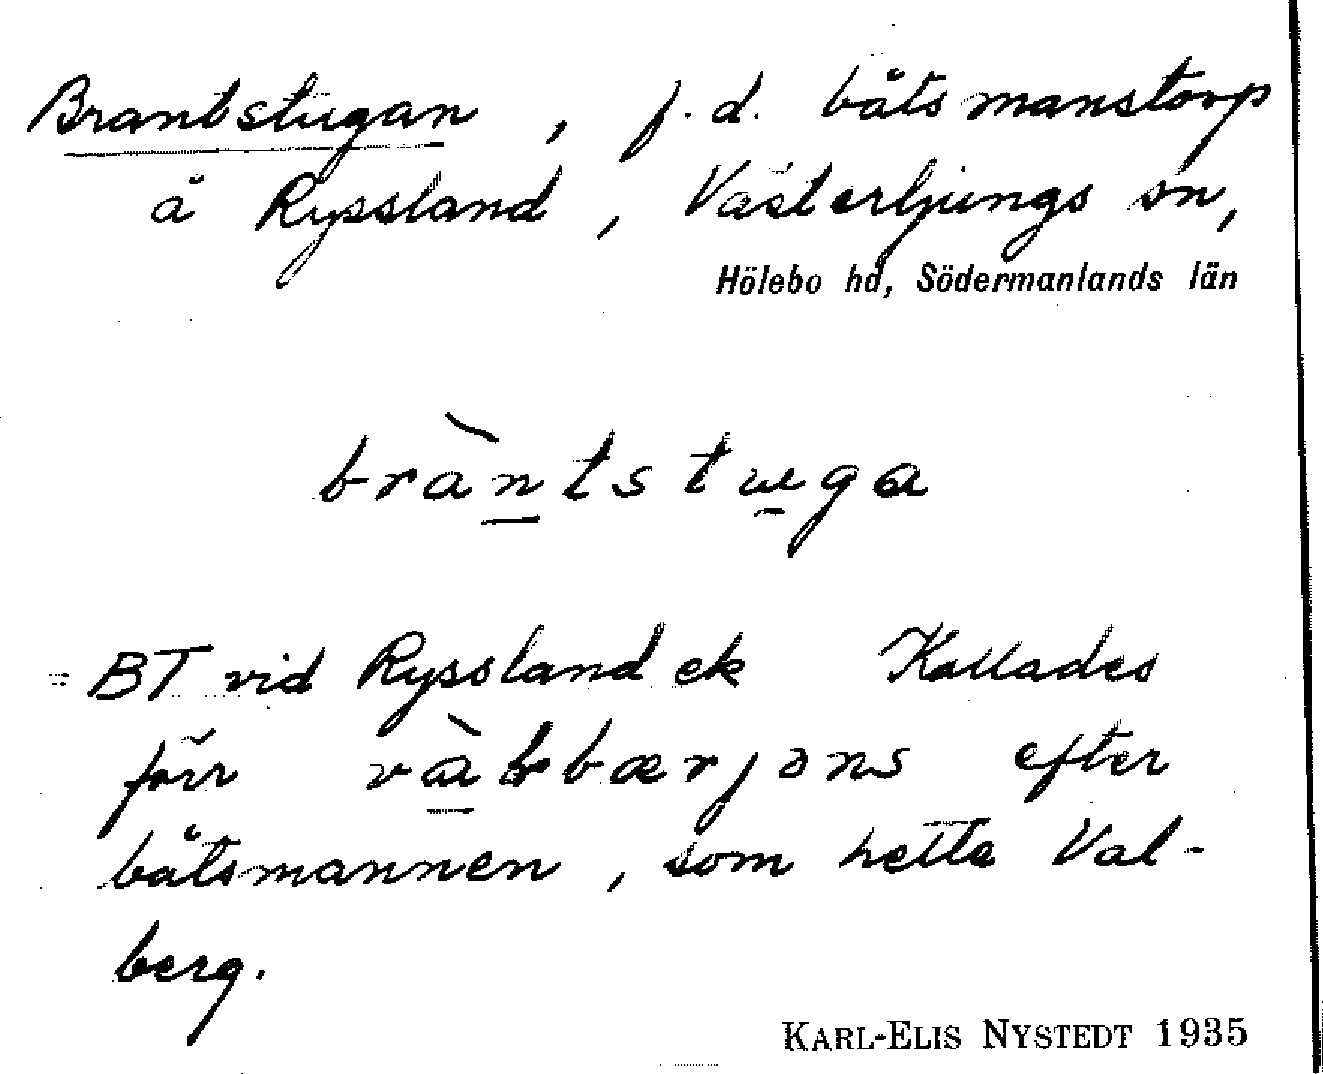 Brantstugan, f.d. båtsmanstorp
å Ryssland, Västerljungs sn,
Hölebo hd, Södermanlands län
bràntstuga
= BT vid Ryssland ek Kallades
förr efter
båtsmannen, som hette Val-
berg.
KARL-ELIS NYSTEDT 1935